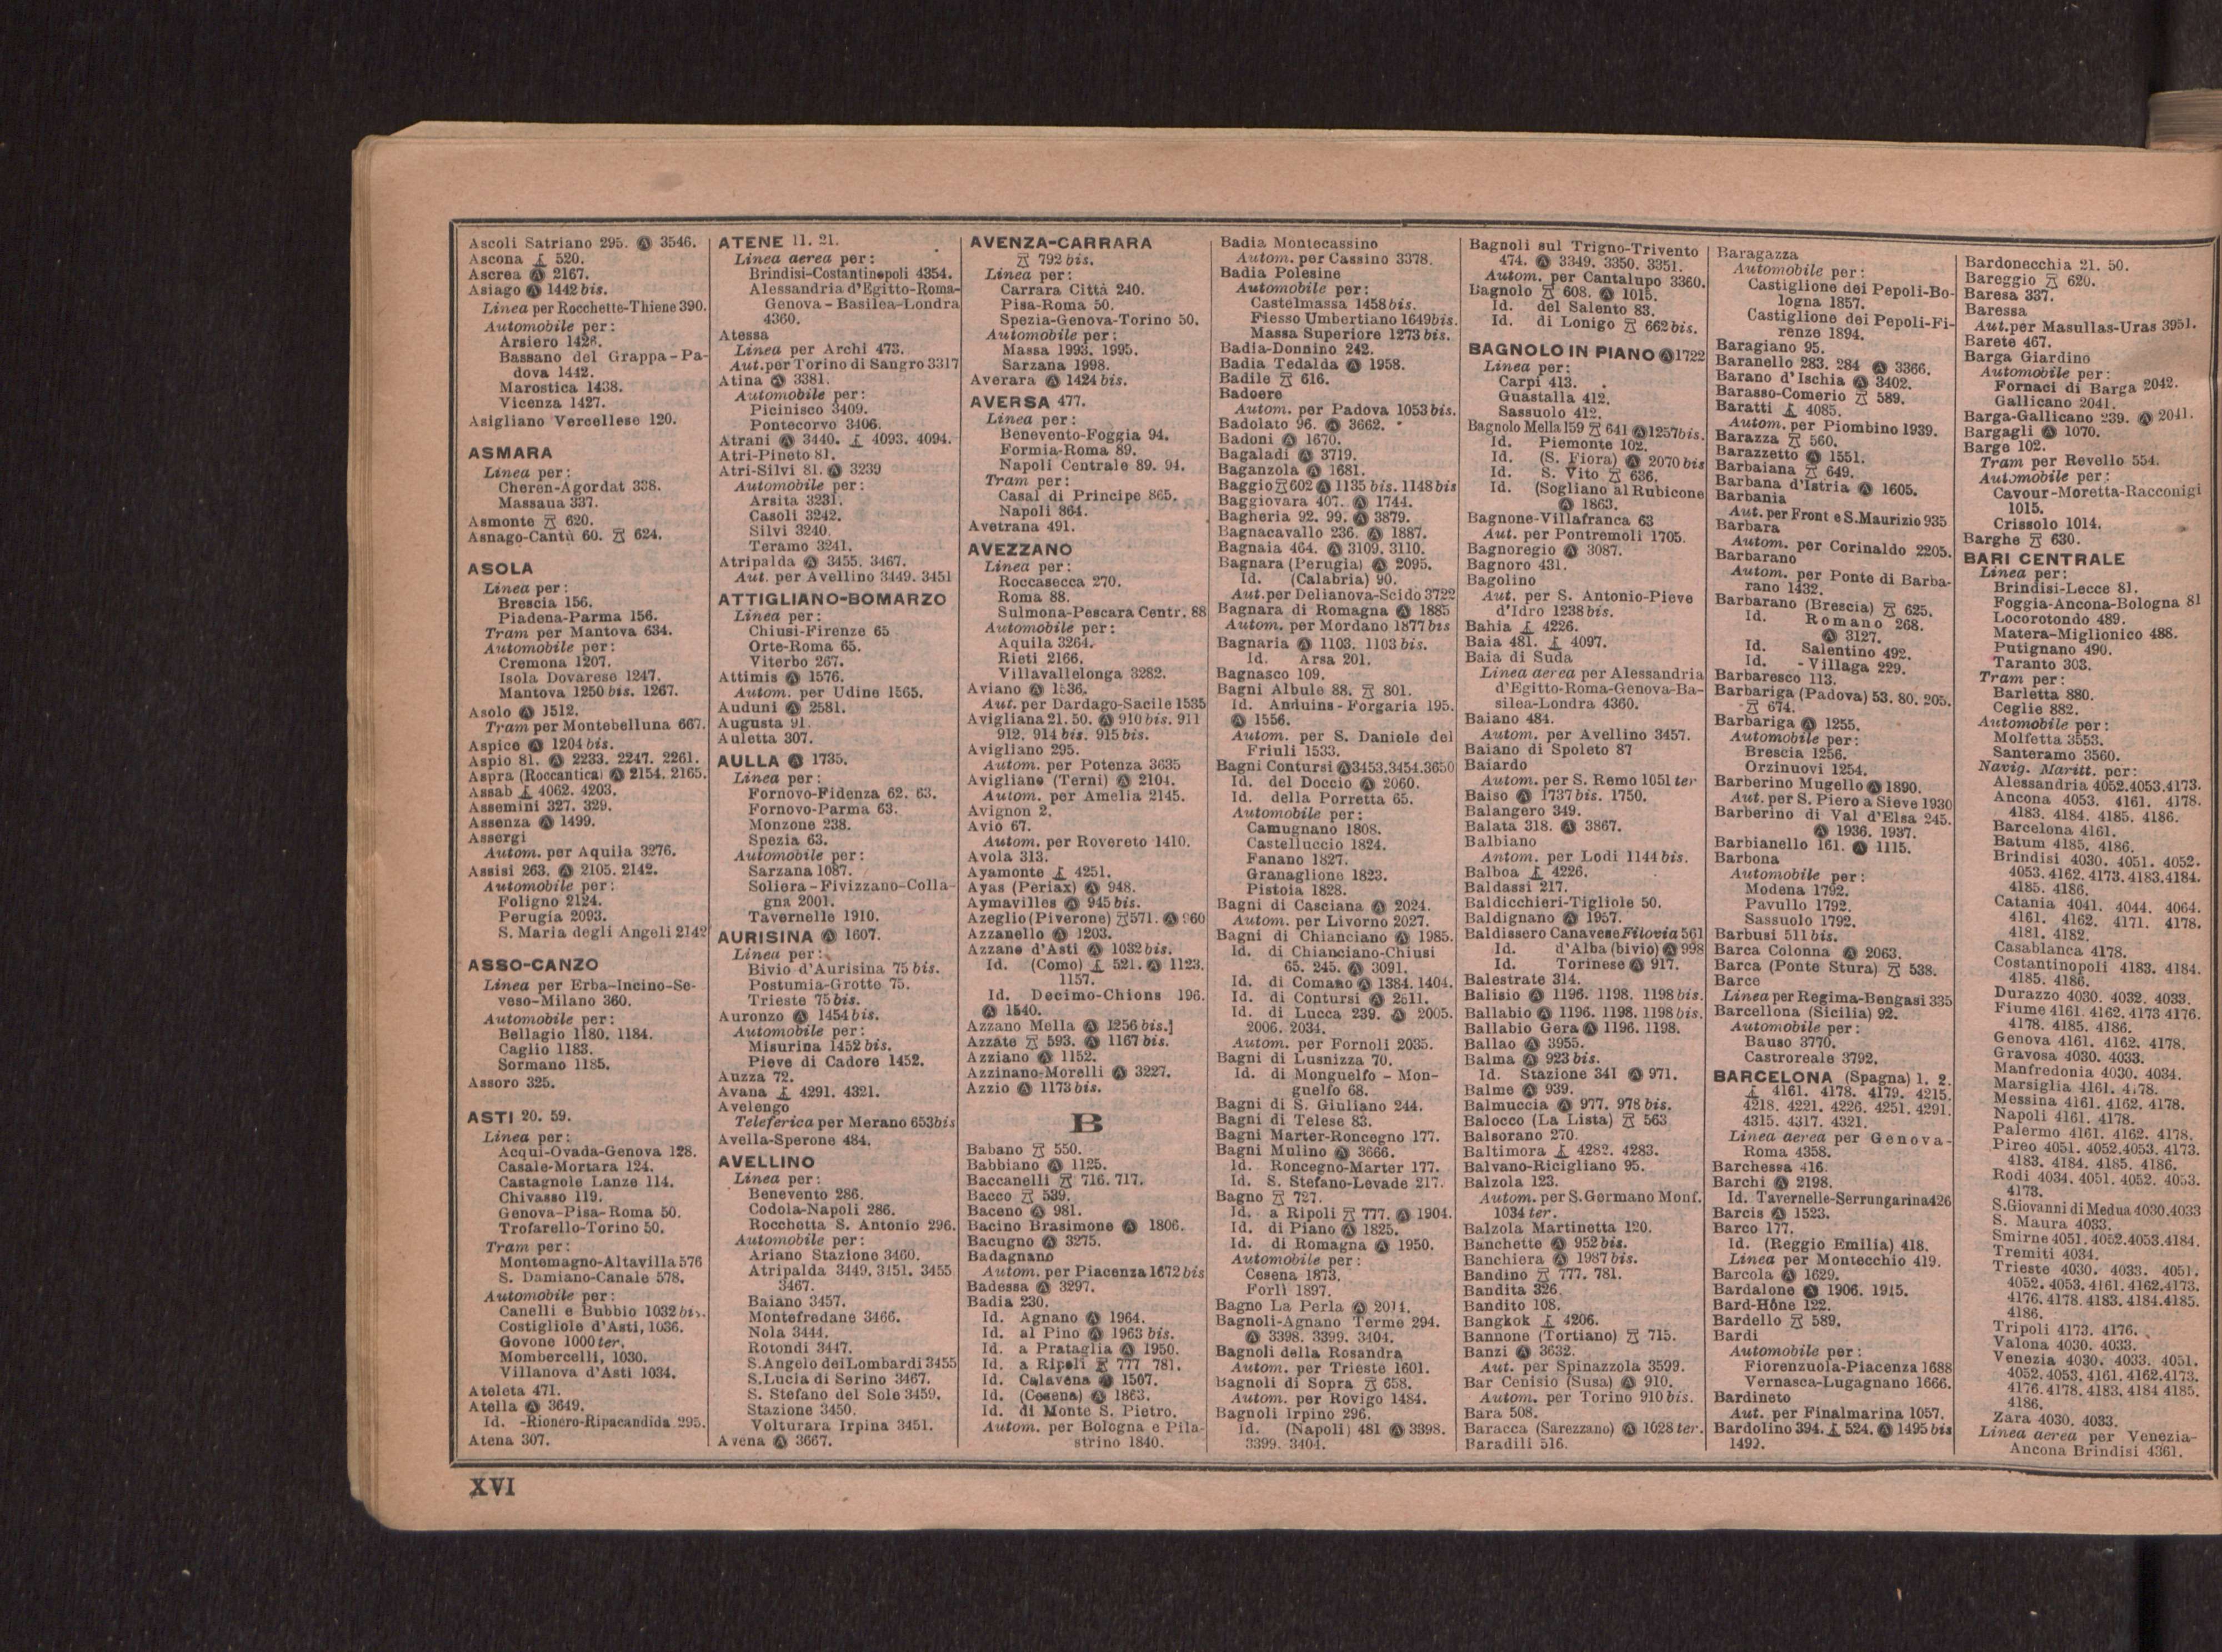 Ascoli Satriano 295. Ⓐ 3546.
Ascona 520.
Ascrea Ⓐ 2167.
Asiago Ⓐ 1442 bis.
Linea per Rocchette-Thiene 390.
Automobile per:
Arsiero 1426.
Bassano del Grappa-Pa-
dova 1442.
Marostica 1438.
Vicenza 1427.
Asigliano Vercellese 120.
ASMARA
Linea per:
Cheren-Agordat 338.
Massaua 337.
Asmonte 620.
Asnago-Cantù 60. 624.
ASOLA
Linea per:
Brescia 156.
Piadena-Parma 156.
Tram per Mantova 634.
Automobile per:
Cremona 1207.
Isola Dovarese 1247.
Mantova 1250 bis. 1267.
Asolo Ⓐ 1512.
Tram per Montebelluna 667.
Aspice Ⓐ 1204 bis.
Aspio 81. Ⓐ 2233. 2247. 2261.
Aspra (Roccantica) Ⓐ 2154. 2165.
Assab 4062. 4203.
Assemini 327. 329.
Assenza Ⓐ 1499.
Assergi
Autom. per Aquila 3276.
Assisi 263. Ⓐ 2105. 2142.
Automobile per:
Foligno 2124.
Perugia 2093.
S. Maria degli Angeli 2142
ASSO-CANZO
Linea per Erba-Incino-Se-
veso-Milano 360.
Automobile per:
Bellagio 1180. 1184.
Caglio 1183.
Sormano 1185.
Assoro 325.
ASTI 20. 59.
Linea per:
Acqui-Ovada-Genova 128.
Casale-Mortara 124.
Castagnole Lanze 114.
Chivasso 119.
Genova-Pisa-Roma 50.
Trofarello-Torino 50.
Tram per:
Montemagno-Altavilla 576
S. Damiano-Canale 578.
Automobile per:
Canelli e Bubbio 1032 bis.
Costigliole d'Asti, 1036.
Govone 1000 ter.
Mombercelli, 1030.
Villanova d'Asti 1034.
Ateleta 471.
Atella Ⓐ 3649.
Id. -Rionero-Ripacandida 295.
Atena 307.
ATENE 11. 21.
Linea aerea per:
Brindisi-Costantinopoli 4354.
Alessandria d'Egitto-Roma-
Genova-Basilea-Londra
4360.
Atessa
Linea per Archi 473.
Aut. per Torino di Sangro 3317
Atina Ⓐ 3381.
Automobile per:
Picinisco 3409.
Pontecorvo 3406.
Atrani Ⓐ 3440. 4093. 4094.
Atri-Pineto 81.
Atri-Silvi 81. Ⓐ 3239
Automobile per:
Arsita 3231.
Casoli 3242.
Silvi 3240.
Teramo 3241.
Atripalda Ⓐ 3455. 3467.
Aut. per Avellino 3449. 3451
ATTIGLIANO-BOMARZO
Linea per:
Chiusi-Firenze 65
Orte-Roma 65.
Viterbo 267.
Attimis Ⓐ 1576.
Autom. per Udine 1565.
Auduni Ⓐ 2581.
Augusta 91.
Auletta 307.
AULLA Ⓐ 1735.
Linea per:
Fornovo-Fidenza 62. 63.
Fornovo-Parma 63.
Monzone 238.
Spezia 63.
Automobile per:
Sarzana 1087.
Soliera-Fivizzano-Colla-
gna 2001.
Tavernelle 1910.
AURISINA Ⓐ 1607.
Linea per:
Bivio d'Aurisina 75 bis.
Postumia-Grotte 75.
Trieste 75 bis.
Auronzo Ⓐ 1454 bis.
Automobile per:
Misurina 1452 bis.
Pieve di Cadore 1452.
Auzza 72.
Avana 4291. 4321.
Avelengo
Teleferica per Merano 653 bis
Avella-Sperone 484.
AVELLINO
Linea per:
Benevento 286.
Codola-Napoli 286.
Rocchetta S. Antonio 296.
Automobile per:
Ariano Stazione 3460.
Atripalda 3449. 3451. 3455
3467.
Baiano 3457.
Montefredane 3466.
Nola 3444.
Rotondi 3447.
S. Angelo dei Lombardi 3455
S. Lucia di Serino 3467.
S. Stefano del Sole 3459.
Stazione 3450.
Volturara Irpina 3451.
Avena Ⓐ 3667.
AVENZA-CARRARA
792 bis.
Linea per:
Carrara Città 240.
Pisa-Roma 50.
Spezia-Genova-Torino 50.
Automobile per:
Massa 1993. 1995.
Sarzana 1998.
Averara Ⓐ 1424 bis.
AVERSA 477.
Linea per:
Benevento-Foggia 94.
Formia-Roma 89.
Napoli Centrale 89. 94.
Tram per:
Casal di Principe 865.
Napoli 864.
Avetrana 491.
AVEZZANO
Linea per:
Roccasecca 270.
Roma 88.
Sulmona-Pescara Centr. 88
Automobile per:
Aquila 3264.
Rieti 2166.
Villavallelonga 3282.
Aviano Ⓐ 1536.
Aut. per Dardago-Sacile 1535
Avigliana 21. 50. Ⓐ 910 bis. 911
912. 914 bis. 915 bis.
Avigliano 295.
Autom. per Potenza 3635
Avigliano (Terni) Ⓐ 2104.
Autom. per Amelia 2145.
Avignon 2.
Avio 67.
Autom. per Rovereto 1410.
Avola 313.
Ayamonte 4251.
Ayas (Periax) Ⓐ 948.
Aymavilles Ⓐ 945 bis.
Azeglio (Piverone) 571. Ⓐ 960
Azzanello Ⓐ 1203.
Azzano d'Asti Ⓐ 1032 bis.
Id. (Como) 521. Ⓐ 1123.
1157.
Id. Decimo-Chions 196.
Ⓐ 1540.
Azzano Mella Ⓐ 1256 bis.]
Azzate 593. Ⓐ 1167 bis.
Azziano Ⓐ 1152.
Azzinano-Morelli Ⓐ 3227.
Azzio Ⓐ 1173 bis.
B
Babano 550.
Babbiano Ⓐ 1125.
Baccanelli 716. 717.
Bacco 539.
Baceno Ⓐ 981.
Bacino Brasimone Ⓐ 1806.
Bacugno Ⓐ 3275.
Badagnano
Autom. per Piacenza 1672 bis
Badessa Ⓐ 3297.
Badia 230.
Id. Agnano Ⓐ 1964.
Id. al Pino Ⓐ 1963 bis.
Id. a Prataglia Ⓐ 1950.
Id. a Ripoli 777 781.
Id. Calavena Ⓐ 1507.
Id. (Cesena) Ⓐ 1863.
Id. di Monte S. Pietro.
Autom. per Bologna e Pila-
strino 1840.
Badia Montecassino
Autom. per Cassino 3378.
Badia Polesine
Automobile per:
Castelmassa 1458 bis.
Fiesso Umbertiano 1649 bis.
Massa Superiore 1273 bis.
Badia-Donnino 242.
Badia Tedalda Ⓐ 1958.
Badile 616.
Badoere
Autom. per Padova 1053 bis.
Badolato 96. Ⓐ 3662.
Badoni Ⓐ 1670.
Bagaladi Ⓐ 3719.
Baganzola Ⓐ 1681.
Baggio 602 Ⓐ 1135 bis. 1148 bis
Baggiovara 407. Ⓐ 1744.
Bagheria 92. 99. Ⓐ 3879.
Bagnacavallo 236. Ⓐ 1887.
Bagnaia 464. Ⓐ 3109. 3110.
Bagnara (Perugia) Ⓐ 2095.
Id. (Calabria) 90.
Aut. per Delianova-Scido 3722
Bagnara di Romagna Ⓐ 1885
Autom. per Mordano 1877 bis
Bagnaria Ⓐ 1103. 1103 bis.
Id. Arsa 201.
Bagnasco 109.
Bagni Albule 88. 801.
Id. Anduins-Forgaria 195.
Ⓐ 1556.
Autom. per S. Daniele del
Friuli 1533.
Bagni Contursi Ⓐ 3453. 3454. 3650
Id. del Doccio Ⓐ 2060.
Id. della Porretta 65.
Automobile per:
Camugnano 1808.
Castelluccio 1824.
Fanano 1827.
Granaglione 1823.
Pistoia 1828.
Bagni di Casciana Ⓐ 2024.
Autom. per Livorno 2027.
Bagni di Chianciano Ⓐ 1985.
Id. di Chianciano-Chiusi
65. 245. Ⓐ 3091.
Id. di Comano Ⓐ 1384. 1404.
Id. di Contursi Ⓐ 2511.
Id. di Lucca 239. Ⓐ 2005.
2006. 2034.
Autom. per Fornoli 2035.
Bagni di Lusnizza 70.
Id. di Monguelfo - Mon-
guelfo 68.
Bagni di S. Giuliano 244.
Bagni di Telese 83.
Bagni Marter-Roncegno 177.
Bagni Mulino Ⓐ 3666.
Id. Roncegno-Marter 177.
Id. S. Stefano-Levade 217.
Bagno 727.
Id. a Ripoli 777. Ⓐ 1904.
Id. di Piano Ⓐ 1825.
Id. di Romagna Ⓐ 1950.
Automobile per:
Cesena 1873.
Forlì 1897.
Bagno La Perla Ⓐ 2014.
Bagnoli-Agnano Terme 294.
Ⓐ 3398. 3399. 3404.
Bagnoli della Rosandra
Autom. per Trieste 1601.
Bagnoli di Sopra 658.
Autom. per Rovigo 1484.
Bagnoli Irpino 296.
Id. (Napoli) 481 Ⓐ 3398.
3399. 3404.
Bagnoli sul Trigno-Trivento
474. Ⓐ 3349. 3350. 3351.
Autom. per Cantalupo 3360.
Bagnolo 608. Ⓐ 1015.
Id. del Salento 83.
Id. di Lonigo 662 bis.
BAGNOLO IN PIANO Ⓐ 1722
Linea per:
Carpi 413.
Guastalla 412.
Sassuolo 412.
Bagnolo Mella 159 641 Ⓐ 1257 bis.
Id. Piemonte 102.
Id. (S. Fiora) Ⓐ 2070 bis
Id. S. Vito 636.
Id. (Sogliano al Rubicone
Ⓐ 1863.
Bagnone-Villafranca 63
Aut. per Pontremoli 1705.
Bagnoregio Ⓐ 3087.
Bagnoro 431.
Bagolino
Aut. per S. Antonio-Pieve
d'Idro 1238 bis.
Bahia 4226.
Baia 481. 4097.
Baia di Suda
Linea aerea per Alessandria
d'Egitto-Roma-Genova-Ba-
silea-Londra 4360.
Baiano 484.
Autom. per Avellino 3457.
Baiano di Spoleto 87
Baiardo
Autom. per S. Remo 1051 ter
Baiso Ⓐ 1737 bis. 1750.
Balangero 349.
Balata 318. Ⓐ 3867.
Balbiano
Antom. per Lodi 1144 bis.
Balboa 4226.
Baldassi 217.
Baldicchieri-Tigliole 50.
Baldignano Ⓐ 1957.
Baldissero Canavese Filovia 561
Id. d'Alba (bivio) Ⓐ 998
Id. Torinese Ⓐ 917.
Balestrate 314.
Balisio Ⓐ 1196. 1198. 1198 bis.
Ballabio Ⓐ 1196. 1198. 1198 bis.
Ballabio Gera Ⓐ 1196. 1198.
Ballao Ⓐ 3955.
Balma Ⓐ 923 bis.
Id. Stazione 341 Ⓐ 971.
Balme Ⓐ 939.
Balmuccia Ⓐ 977. 978 bis.
Balocco (La Lista) 563
Balsorano 270.
Baltimora 4282. 4283.
Balvano-Ricigliano 95.
Balzola 123.
Autom. per S. Germano Monf.
1034 ter.
Balzola Martinetta 120.
Banchette Ⓐ 952 bis.
Banchiera Ⓐ 1987 bis.
Bandino 777. 781.
Bandita 326.
Bandito 108.
Bangkok 4206.
Bannone (Tortiano) 715.
Banzi Ⓐ 3632.
Aut. per Spinazzola 3599.
Bar Cenisio (Susa) Ⓐ 910.
Autom. per Torino 910 bis.
Bara 508.
Baracca (Sarezzano) Ⓐ 1028 ter.
Baradili 516.
Baragazza
Automobile per:
Castiglione dei Pepoli-Bo-
logna 1857.
Castiglione dei Pepoli-Fi-
renze 1894.
Baragiano 95.
Baranello 283. 284 Ⓐ 3366.
Barano d'Ischia Ⓐ 3402.
Barasso-Comerio 589.
Baratti 4085.
Autom. per Piombino 1939.
Barazza 560.
Barazzetto Ⓐ 1551.
Barbaiana 649.
Barbana d'Istria Ⓐ 1605.
Barbania
Aut. per Front e S. Maurizio 935
Barbara
Autom. per Corinaldo 2205.
Barbarano
Autom. per Ponte di Barba-
rano 1432.
Barbarano (Brescia) 625.
Id. Romano 268.
Ⓐ 3127.
Id. Salentino 492.
Id. -Villaga 229.
Barbaresco 113.
Barbariga (Padova) 53. 80. 205.
674.
Barbariga Ⓐ 1255.
Automobile per:
Brescia 1256.
Orzinuovi 1254.
Barberino Mugello Ⓐ 1890.
Aut. per S. Piero a Sieve 1930
Barberino di Val d'Elsa 245.
Ⓐ 1936. 1937.
Barbianello 161. Ⓐ 1115.
Barbona
Automobile per:
Modena 1792.
Pavullo 1792.
Sassuolo 1792.
Barbusi 511 bis.
Barca Colonna Ⓐ 2063.
Barca (Ponte Stura) 538.
Barce
Linea per Regima-Bengasi 335
Barcellona (Sicilia) 92.
Automobile per:
Bauso 3770.
Castroreale 3792.
BARCELONA (Spagna) 1. 2.
4161. 4178. 4179. 4215.
4218. 4221. 4226. 4251. 4291.
4315. 4317. 4321.
Linea aerea per Genova-
Roma 4358.
Barchessa 416.
Barchi Ⓐ 2198.
Id. Tavernelle-Serrungarina 426
Barcis Ⓐ 1523.
Barco 177.
Id. (Reggio Emilia) 418.
Linea per Montecchio 419.
Barcola Ⓐ 1629.
Bardalone Ⓐ 1906. 1915.
Bard-Hône 122.
Bardello 589.
Bardi
Automobile per:
Fiorenzuola-Piacenza 1688
Vernasca-Lugagnano 1666.
Bardineto
Aut. per Finalmarina 1057.
Bardolino 394. 524. Ⓐ 1495 bis
1492.
Bardonecchia 21. 50.
Bareggio 620.
Baresa 337.
Baressa
Aut. per Masullas-Uras 3951.
Barete 467.
Barga Giardino
Automobile per:
Fornaci di Barga 2042.
Gallicano 2041.
Barga-Gallicano 239. Ⓐ 2041.
Bargagli Ⓐ 1070.
Barge 102.
Tram per Revello 554.
Automobile per:
Cavour-Moretta-Racconigi
1015.
Crissolo 1014.
Barghe 630.
BARI CENTRALE
Linea per:
Brindisi-Lecce 81.
Foggia-Ancona-Bologna 81
Locorotondo 489.
Matera-Miglionico 488.
Putignano 490.
Taranto 303.
Tram per:
Barletta 880.
Ceglie 882.
Automobile per:
Molfetta 3553.
Santeramo 3560.
Navig. Maritt. per:
Alessandria 4052. 4053. 4173.
Ancona 4053. 4161. 4178.
4183. 4184. 4185. 4186.
Barcelona 4161.
Batum 4185. 4186.
Brindisi 4030. 4051. 4052.
4053. 4162. 4173. 4183. 4184.
4185. 4186.
Catania 4041. 4044. 4064.
4161. 4162. 4171. 4178.
4181. 4182.
Casablanca 4178.
Costantinopoli 4183. 4184.
4185. 4186.
Durazzo 4030. 4032. 4033.
Fiume 4161. 4162. 4173 4176.
4178. 4185. 4186.
Genova 4161. 4162. 4178.
Gravosa 4030. 4033.
Manfredonia 4030. 4034.
Marsiglia 4161. 4178.
Messina 4161. 4162. 4178.
Napoli 4161. 4178.
Palermo 4161. 4162. 4178.
Pireo 4051. 4052. 4053. 4173.
4183. 4184. 4185. 4186.
Rodi 4034. 4051. 4052. 4053.
4173.
S. Giovanni di Medua 4030. 4033
S. Maura 4033.
Smirne 4051. 4052. 4053. 4184.
Tremiti 4034.
Trieste 4030. 4033. 4051.
4052. 4053. 4161. 4162. 4173.
4176. 4178. 4183. 4184. 4185.
4186.
Tripoli 4173. 4176.
Valona 4030. 4033.
Venezia 4030. 4033. 4051.
4052. 4053. 4161. 4162. 4173.
4176. 4178. 4183. 4184 4185.
4186.
Zara 4030. 4033.
Linea aerea per Venezia-
Ancona Brindisi 4361.
XVI